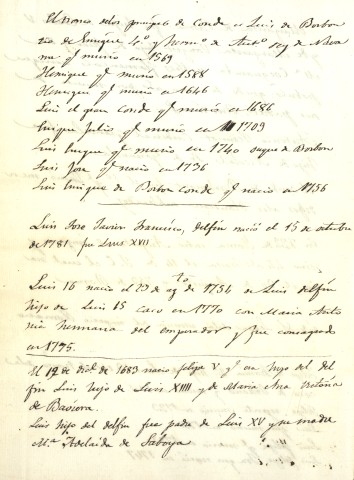 El tronco de los principes de Conde es Luis de Borbon
tio de Enrique 4º y herm.º de Antº rey de Nava
rra qᵉ murio en 1569
Henrique qᵉ murio en 1588
Henrique qᵉ murio en 1646
Luis el gran conde qᵉ murió en 1686
Enrique Julio qᵉ murió en 1709
Luis Enrique qᵉ murio en 1740 duque de Borbon
Luis Jose qᵉ nacio en 1736
Luis Enrique de Borbon conde qᵉ nacio en 1756
Luis Jose Javier Francisco, delfin nació el 15 de octubre
de 1781. fue Luis XVII
Luis 16 nacio el 23 de agᵗᵒ de 1754 es Luis delfin
hijo de Luis 15 caso en 1770 con Maria Anto
nia hermana del emperador y fue consagrado
en 1775.
El 19 de Dicᵉ. de 1683 nacio felipe V qᵉ era hijo del del
fin Luis hijo de Luis XIIII y de Maria Ana Vitoria
de Babiera.
Luis hijo del delfin fue padre de Luis XV y su madre
M.ª Adelaida de Saboya